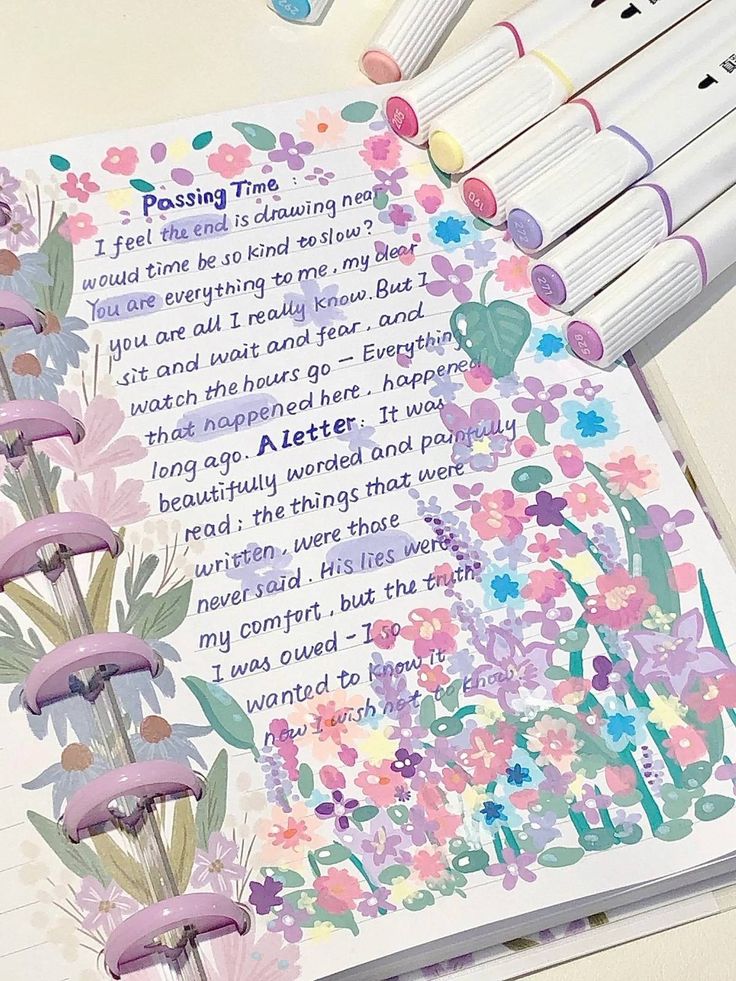 Passing Time :
I feel the end is drawing near
would time be so kind to slow?
You are everything to me, my dear
you are all I really know. But I
sit and wait and fear, and
watch the hours go – Everything
that happened here, happened
long ago. A Letter: It was
beautifully worded and painfully
read; the things that were
written, were those
never said. His lies were
my comfort, but the truth
I was owed – I so
wanted to know it
now I wish not to know.
292
205
190
272
271
528